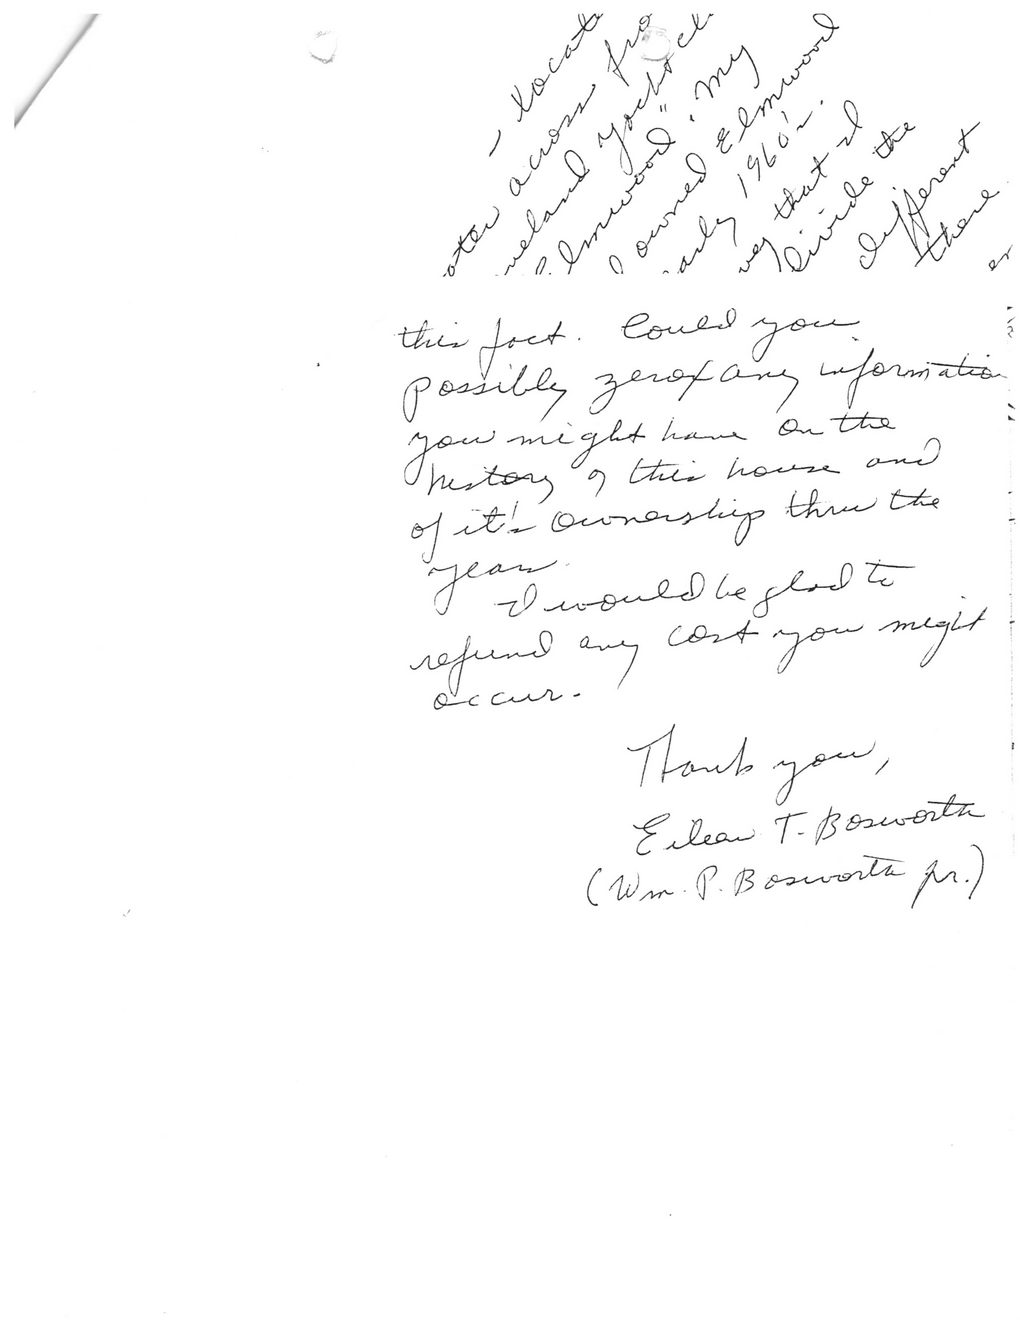 - locate
across fro
yacht cl
Elmwood". My
owned Elmwood
1960's.
that I
divide the
different
there
this fact. Could you
possibly zerox any informatio
you might have on the
history of this house and
of it's ownership thru the
years.
I would be glad to
refund any cost you might
occur.
Thank you,
Eileen T. Bosworth
(Wm. P. Bosworth jr.)